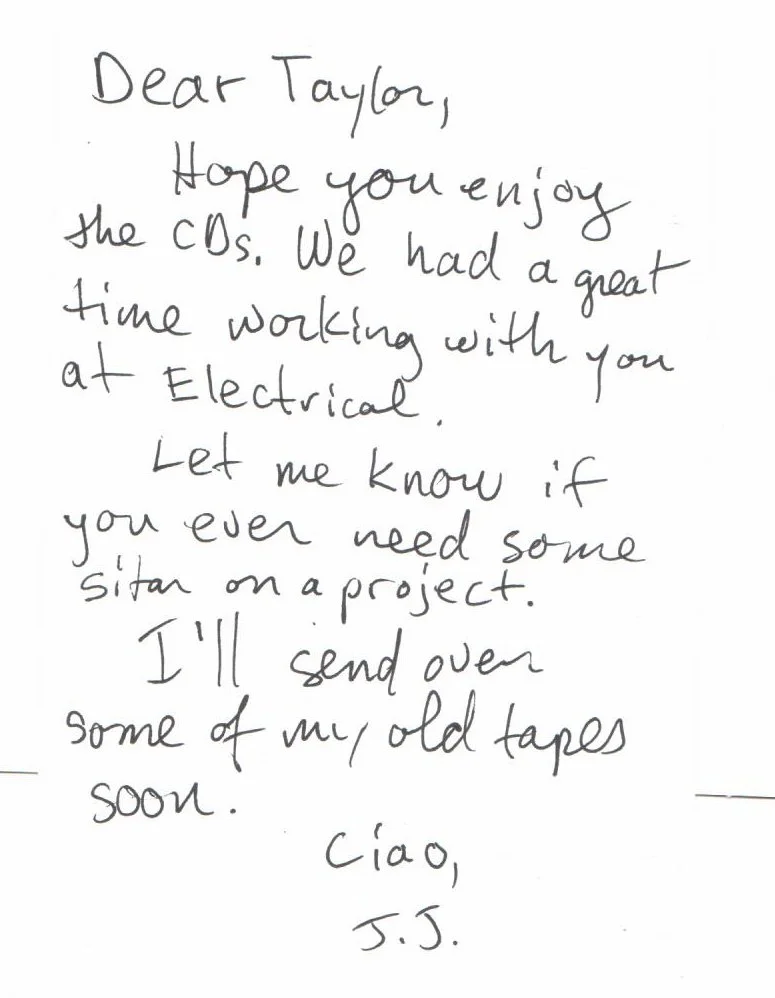 Dear Taylor,
Hope you enjoy
the CDs. We had a great
time working with you
at Electrical.
Let me know if
you ever need some
sitar on a project.
I'll send over
some of my old tapes
soon.
Ciao,
J.J.